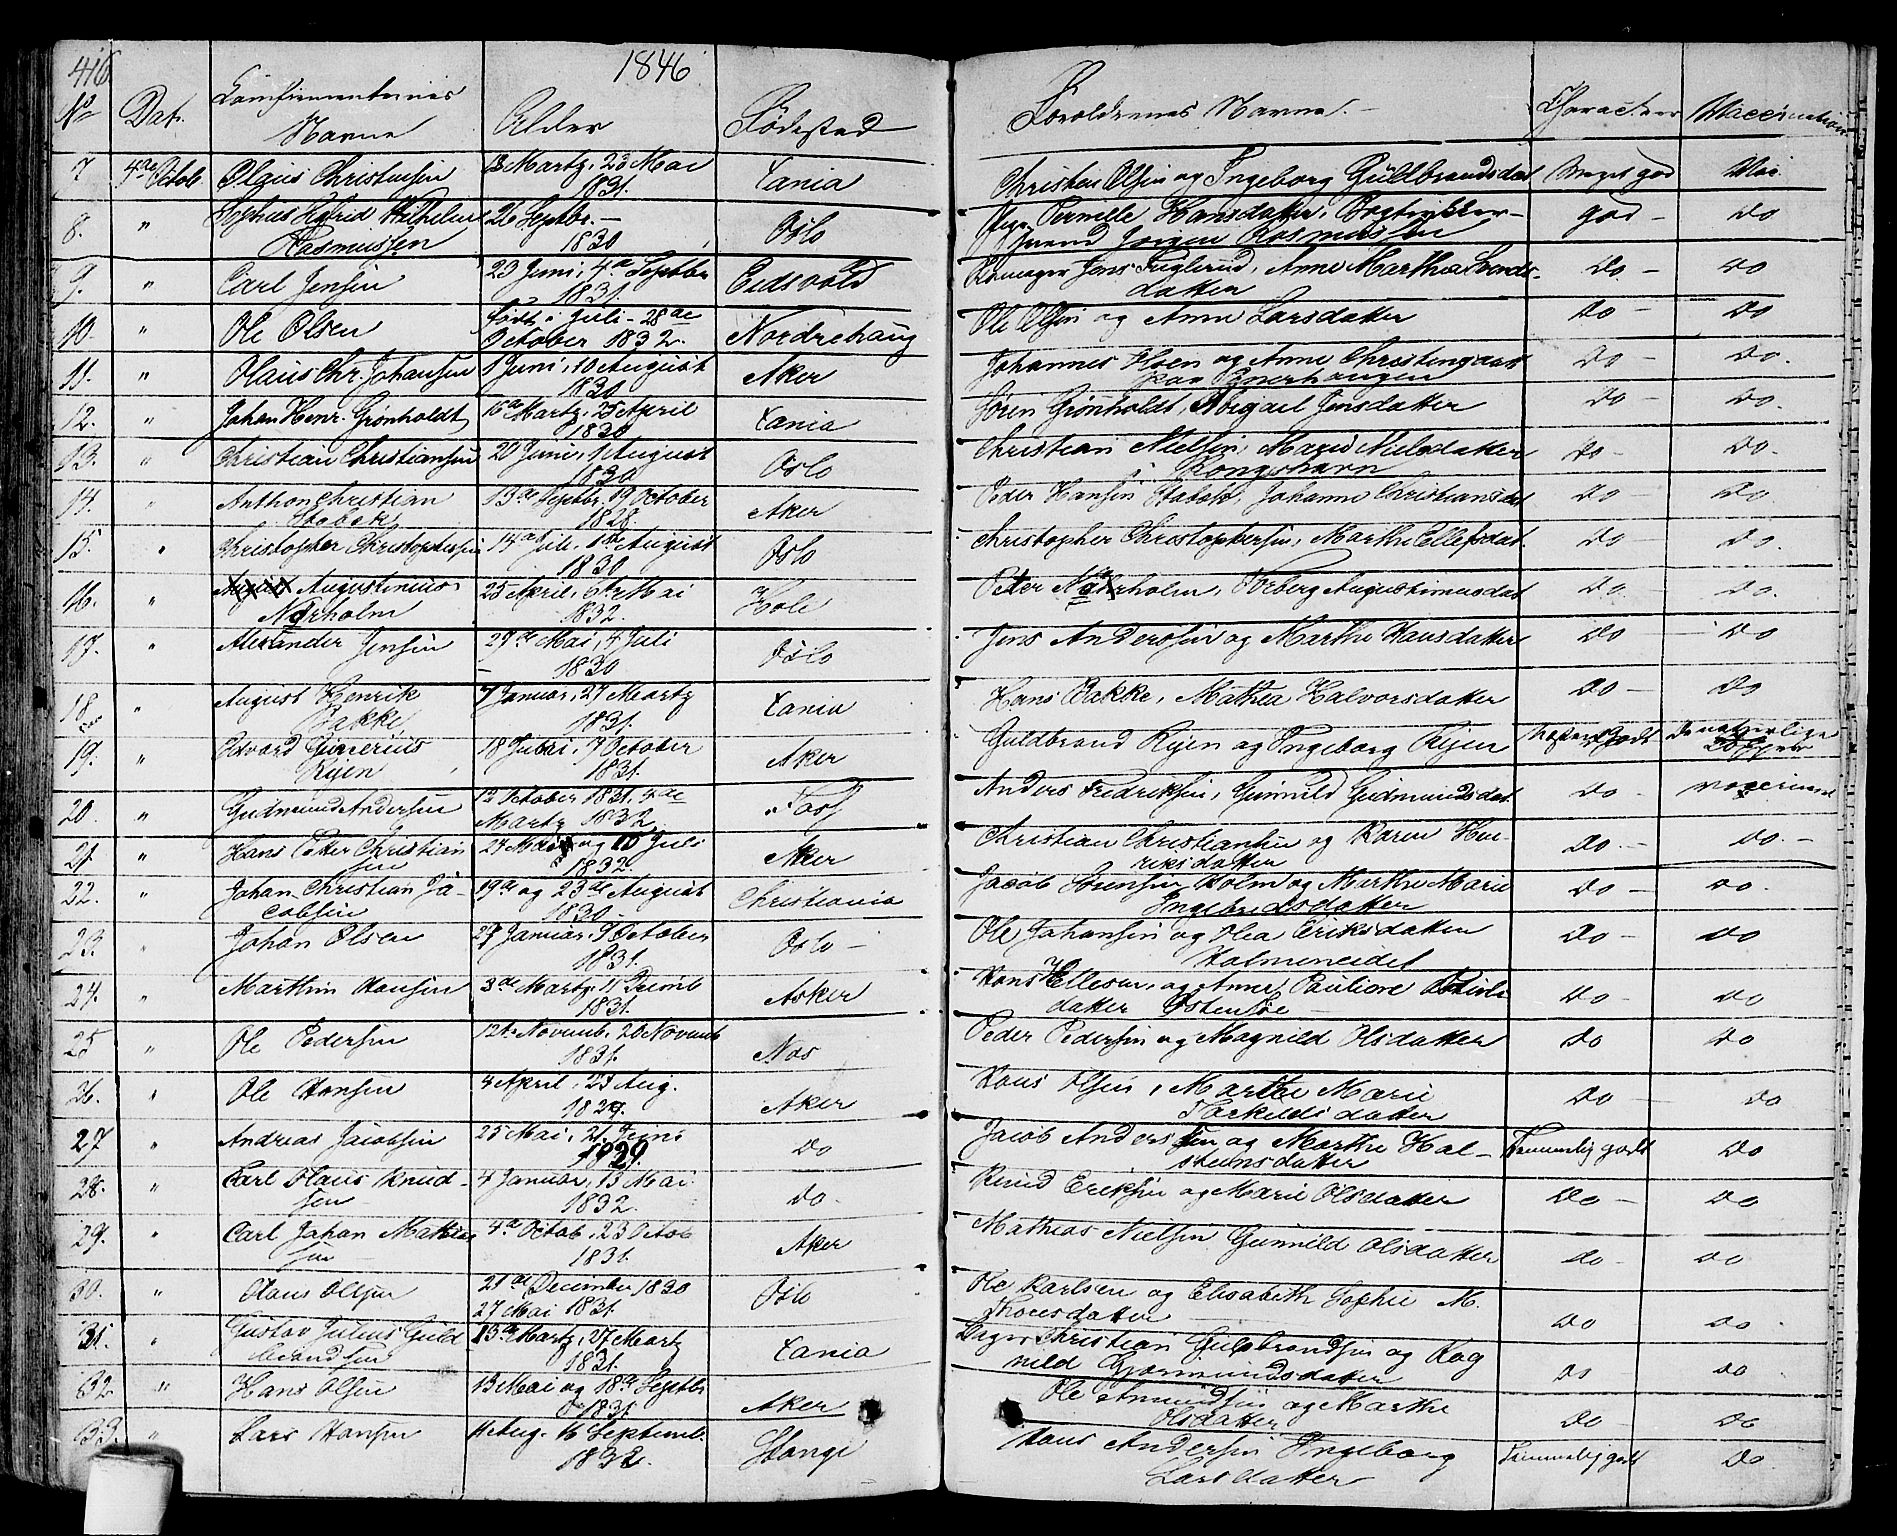 416
1846
No Dat. Confirmenternes Navne Alder Fødested Foreldrenes Navne. Character Vaccination
7 4de Octob Olaus Christensen 13 Martz, 23 Mai 1831. Xania Christen Olsen og Ingeborg Guldbrandsdat Meget god Vac.
8. " Sophus Wilhelm Rasmussen 26 Septbr. – 1830 Oslo Pernille Hansdatter, Bogtrykker- Jørgen Rasmussen god – Do
9. " Carl Jensen 23 Juni, 4de Septbr 1831. Eidsvold Jens Fuglerud, Anne Marthea datter Do – Do
10. " Ole Olsen født i Juli – 28de October 1832. Nordrehaug Ole Olsen og Anne Larsdatter Do – Do
11. " Olaus Chr. Johansen 1 Juni, 10 August 1830 Aker Johannes Hoen og Anne Christensdatt Do – Do.
12. " Johan Henr. Grønholdt 16de Martz, 25 April 1830 Xania Søren Grønholdt, Abigael Jensdatter Do – Do.
13. " Christian Christiansen 20 Juni, 1 August 1830 Oslo Christian Nielsen, Marie Nielsdatter i Kongshavn Do – Do.
14. " Anthon Christian Stabek 13de Septbr, 19 October 1828. Aker Peder Hansen Stabek, Johanne Christiansdat Do Do
15. " Christopher Christophersen 14de Juli, 1ste August 1830 Oslo Christopher Christophersen, Marthe Ellefsdat. Do – Do.
16. " Augustinius Nørholm 25 April, 6te Mai 1832. Hole Peter Nørholm, Torberg Augustinusdat Do Do.
17. " Alexander Jensen 29de Mai, 4 Juli 1830 Oslo Jens Andersen og Marthe Hansdatter Do – Do
18 " August Henrik Bakke 7 Januar, 27 Martz 1831. Xania Hans Bakke, Mathea Halvorsdatter Do – Do
19. " Edvard Ryen 18 Juli, 9 October 1831. Aker Guldbrand Ryen og Ingeborg Ryen Meget Godt De naturlige Copper
20. " Gudmund Andersen 12 October 1831, 4de Martz 1832. Anders Fredriksen, Gunnild Gudmundsdat. Do – vaccineret
21. " Hans Petter Christiansen 24 Mai og 10 Juli 1832. Aker Christian Christiansen og Karen Henriksdatter Do – Do. –
22. " Johan Christian Jacobsen 19de og 23de August 1830 – Christiania Jacob Sørensen Holm og Marthe Marie Ingebretsdatter Do – Do.
23. " Johan Olsen 27 Januar, 9 October 1831. Oslo – Ole Johansen og Olea Eriksdatter Holmeneidet Do – Do
24. " Marthin Hansen 3de Martz, 11 Decemb 1831. Asker Hans Ellesen, og Anne Pauline datter Østensøe – Do – Do
25 " Ole Pedersen 12te Novemb, 20 Novemb 1831. Nes Peder Pedersen og Magnild Olsdatter Do Do
26. " Ole Hansen 4 April, 23 Aug. 1829. Aker Hans Olsen, Marthe Marie Torkildsdatter Do – Do
27 " Andreas Jacobsen 25 Mai, 21 Juni 1829. Do Jacob Andersen og Marthe Halsteensdatter Temmelig godt Do
28. " Carl Olaus Knudsen 4 Januar, 13 Mai 1832. Do. Knud Eriksen og Marie Olsdatter Do – Do
29. " Carl Johan Mathiesen 4de Octob, 23 Octob 1831. Aker Mathias Nielsen Gunnild Olsdatter Do – Do
30. " Olaus Olsen 21de December 1830 27 Mai 1831. Oslo Ole Karlsen og Elisabeth Sophie M. Thoresdatter Do Do.
31. " Gustav Julius Guldbrandsen 13de Martz, 27 Martz 1831. Xania Christian Guldbrandsen og Ragnild Gjermundsdatter Do Do
32 " Hans Olsen 13 Mai og 18de Septbr 1831. Aker Ole Amundsen og Marthe Olsdatter Do – Do
33. " Lars Hansen 11 Aug. 16 Septemb. 1832. Stange Hans Andersen Ingeborg Larsdatter Temmelig godt Do